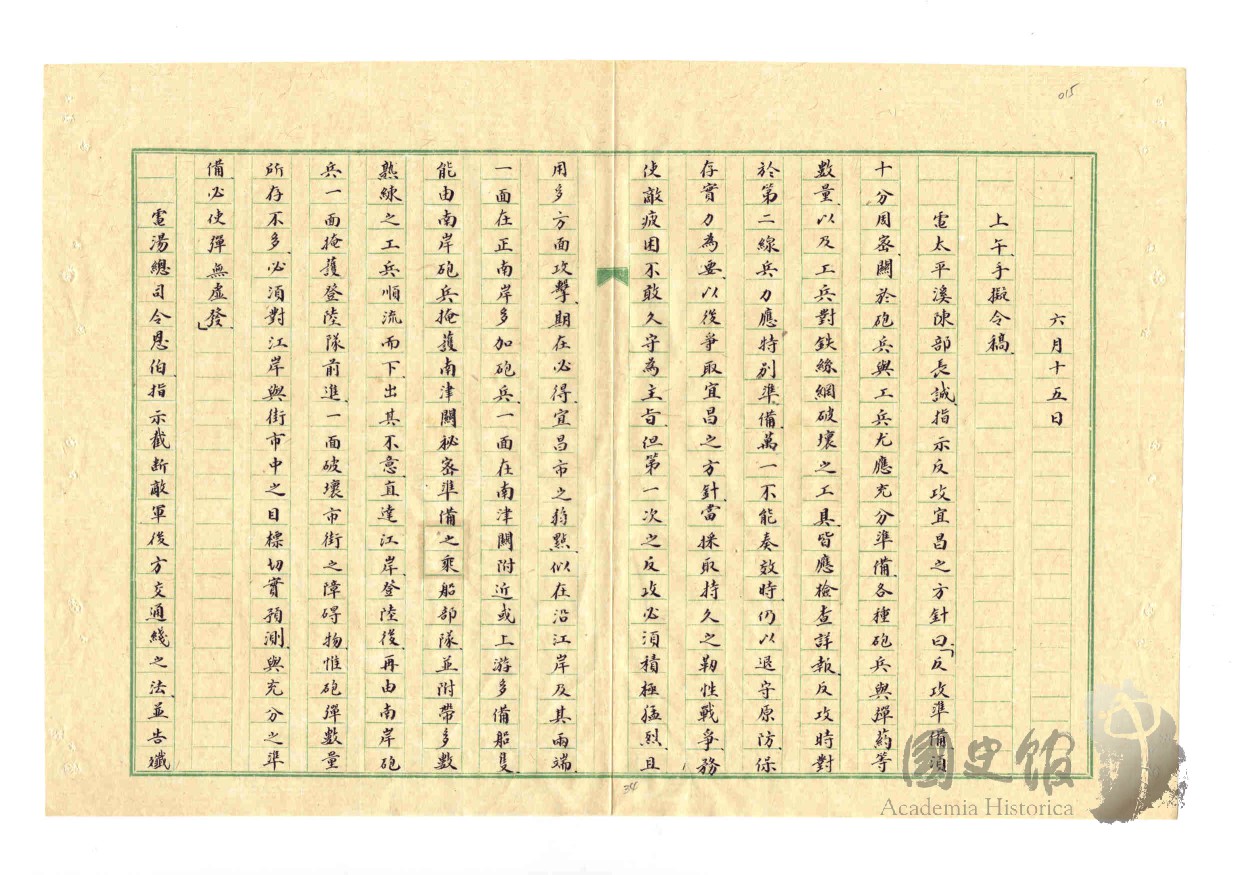 015
六月十五日
上午手擬令稿
電太平溪陳部長誠、指示反攻宜昌之方針曰、「反攻準備須
十分周密、關於砲兵與工兵尤應充分準備、各種砲兵與彈葯等
數量、以及工兵對鉄絲網破壞之工具、皆應檢查詳報、反攻時對
於第二線兵力應特別準備、萬一不能奏效時、仍以退守原防、保
存實力為要、以後爭取宜昌之方針、當採取持久之韌性戰爭、務
使敵疲困不敢久守為主旨、但第一次之反攻必須積極猛烈、且
用多方面攻擊、期在必得、宜昌市之弱點、似在沿江岸及其兩端、
一面在正南岸多加砲兵、一面在南津關附近或上游多備船隻、
能由南岸砲兵掩護南津關秘密準備之乘船部隊、並附帶多數
熟練之工兵順流而下、出其不意、直達江岸、登陸後、再由南岸砲
兵一面掩護登陸隊前進、一面破壞市街之障碍物、惟砲彈數量
所存不多、必須對江岸與街市中之目標切實預測、與充分之準
備、必使彈無虛發、」
電湯總司令恩伯、指示截斷敵軍後方交通綫之法、並告殲
34
國史館
Academia Historica